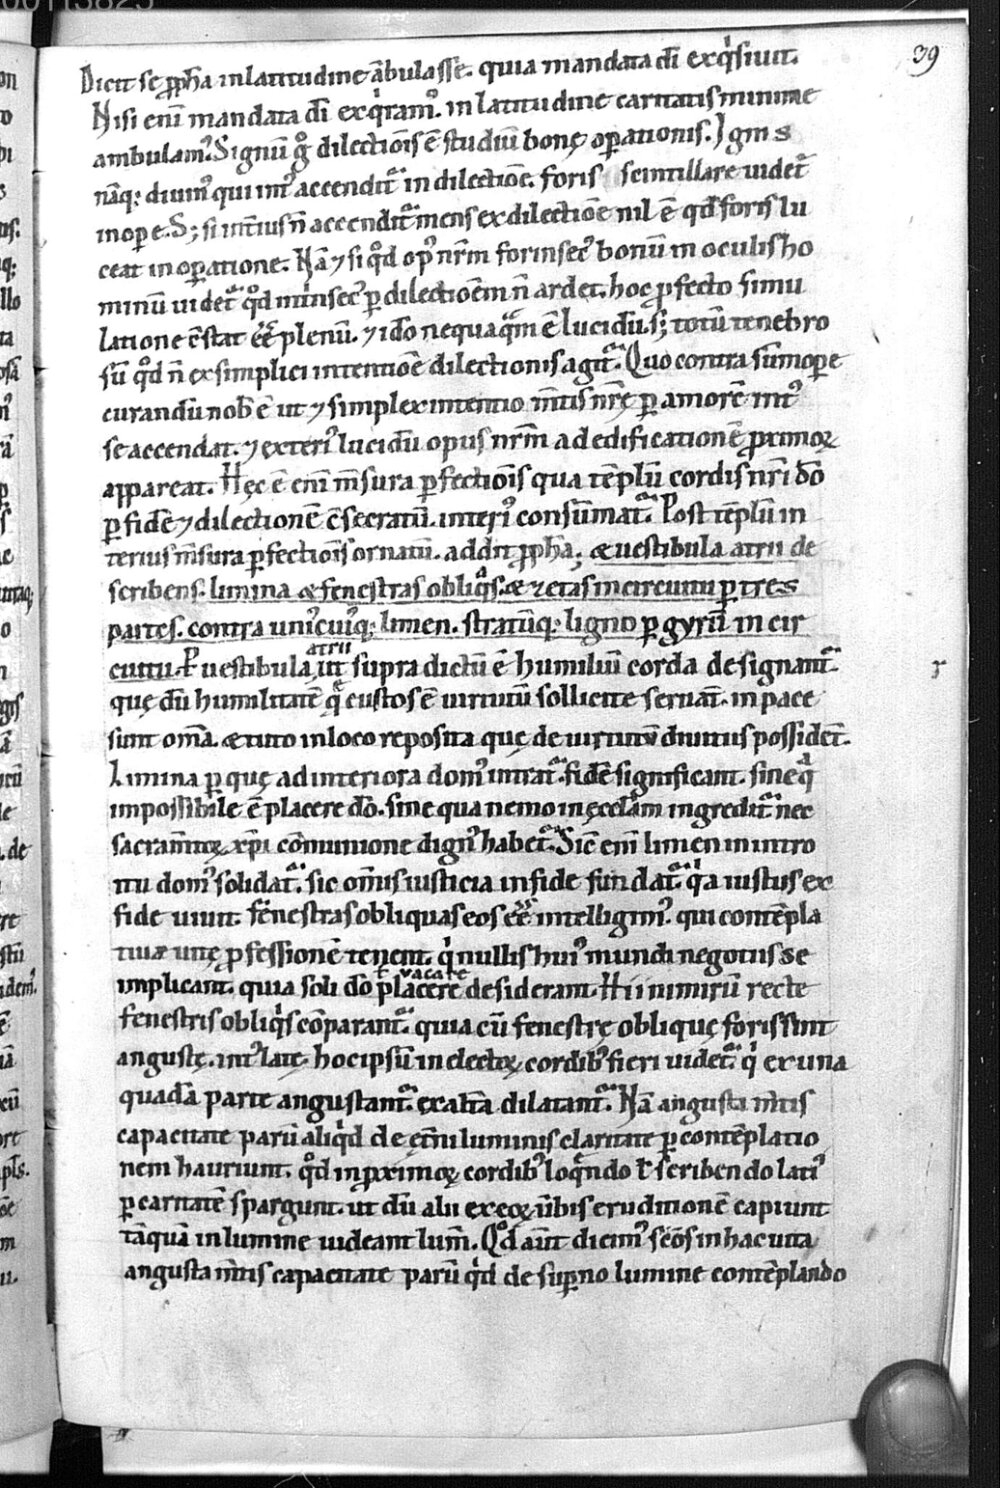 00113823
39
Dicit se ꝓph̄a in latitudine ābulasse. quia mandata dī exqͥsiuit.
Nisi enī mandata dī exqͥramꝰ. in latitudine caritatis minime
ambulamꝰ. Signū gͦ dilectiōis ē studiū bonę oꝑationis. Ignis
nāq; diuinꝰ qui intꝰ accendit᷑ in dilectiōe. foris scintillare uidet᷑
in opere. S; si intiꝰ n̄ accendit᷑ mens ex dilectiōe nil ē qd̄ foris lu
ceat in oꝑatione. Nā ⁊ si qͦd opꝰ nr̄m forinsecꝰ bonū in oculis ho
minū uidet᷑ qͦd intrinsecꝰ ꝑ dilectioēm n̄ ardet. hoc ꝓfecto simu
latione c̄stat ēē plenū. ⁊ ido nequaqͣm ē lucidū. s; totū tenebro
sū qͦd n̄ ex simplici intentiōe dilectionis agit᷑. Quo contra sūmopere
curandū nob̄ ē ut ⁊ simplex intentio m̄tis nr̄ę ꝑ amorē intꝰ
se accendat. ⁊ exteriꝰ lucidū opus nr̄m ad edificationē ꝓximoꝝ
appareat. Hęc ē enī m̄sura ꝑfectiōis qua tēplū cordis nr̄i dō
ꝑ fidē ⁊ dilectionē c̄secratū. interiꝰ consūmat᷑. Post tēplū in
terius m̄sura ꝑfectiōis ornatū. addit ꝓph̄a; & uestibula atrii de
scribens. limina & fenestras obliqͣs. & zetas in circuitu ꝑ tres
partes. contra uniꝰcuiꝰq; limen. stratūq; ligno ꝑ gyrū in cir
cuitu. Ꝑ uestibula atrii ut supra dictū ē humiliū corda designant᷑.
quę dū humilitatē qͣ custos ē uirtutū sollicite seruāt. in pace
sunt om̄a. & tuto in loco reposita quę de uirtutū diuitiis possidēt.
Limina ꝑ quę ad interiora domꝰ intrat᷑. fidē significant. sine qͣ
impossibile ē placere dō. sine qua nemo in ęccl̄am ingredit᷑ nec
sacram̄toꝝ xp̄i cōmunione dignꝰ habet᷑. Sic enī limen in intro
itu domꝰ solidat᷑. sic om̄is iusticia in fide fundat᷑. qͥa iustus ex
fide uiuit. fēnestras obliquas eos ēē intelligimꝰ. qui contēpla
tiuæ uitę ꝓfessionē tenent. qͥ nullis huiꝰ mundi negotiis se
implicant. quia soli dō placere ł vacare desiderant. Hii nimirū recte
fenestris obliqͥs cōparant᷑. quia cū fenestrę oblique foris sint
angustę. intꝰ latę. hoc ipsū in electoꝝ cordibꝰ fieri uidet᷑. qͥ ex una
quadā parte angustant᷑. ex alt̄a dilatant᷑. Nā angusta m̄tis
capacitate parū aliqͥd de ęt̄ni luminis claritate ꝑ contēplatio
nem hauriunt. qͦd in ꝓximoꝝ cordibꝰ loqͣndo ł scribendo latiꝰ
ꝑ caritatē spargunt. ut dū alii ex eoꝝ ūbis eruditionē capiunt
tāquā in lumine uideant lum̄. Qͦd aūt dicimꝰ sc̄os in hac uita
angusta m̄tis capacitate parū qͥd de suꝑno lumine contēplando